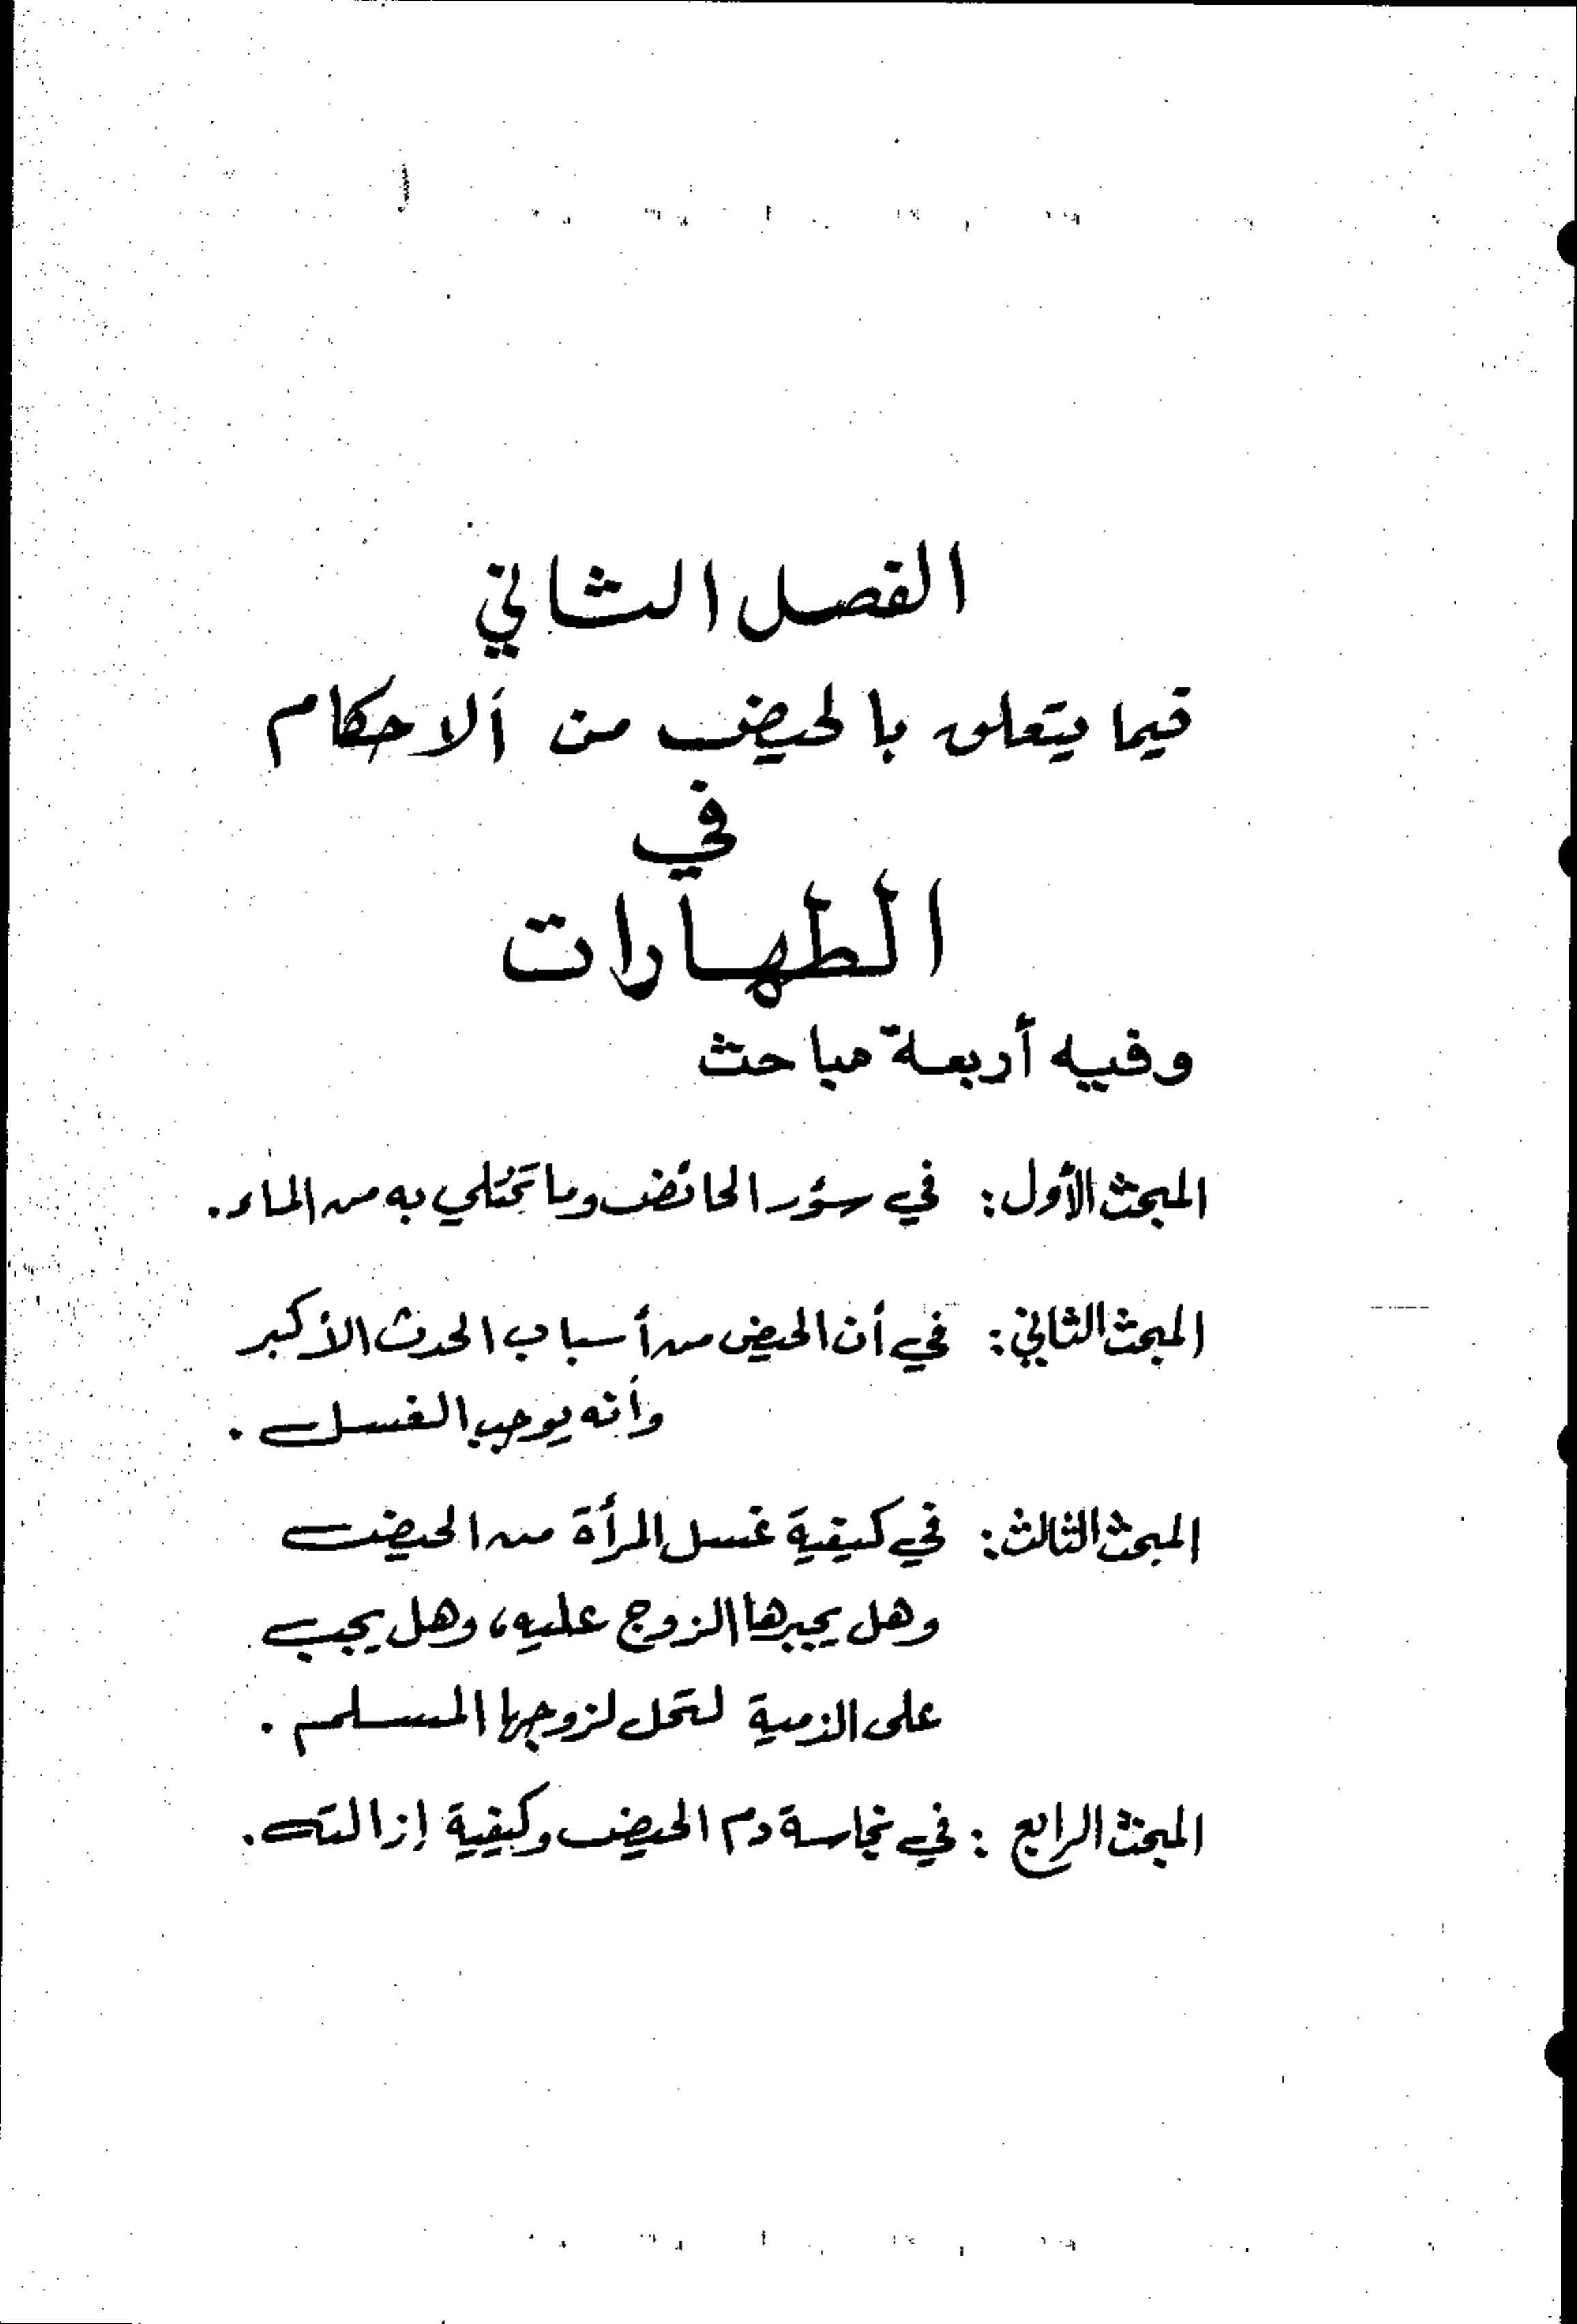 الفصل الثاني
فيما يتعلق بالحيض من ألاحكام
في
الطهارات
وفيه أربعة مباحث
المبحث الأول: في سؤر الحائض وما تختلي به من الماء.
المبحث الثاني: في أن الحيض من أسباب الحدث الأكبر
وأنه يوجب الغسل.
المبحث الثالث: في كيفية غسل المرأة من الحيض
وهل يجبرها الزوج عليه، وهل يجب
على الذمية لتحل لزوجها المسلم.
المبحث الرابع: في نجاسة دم الحيض وكيفية إزالته.